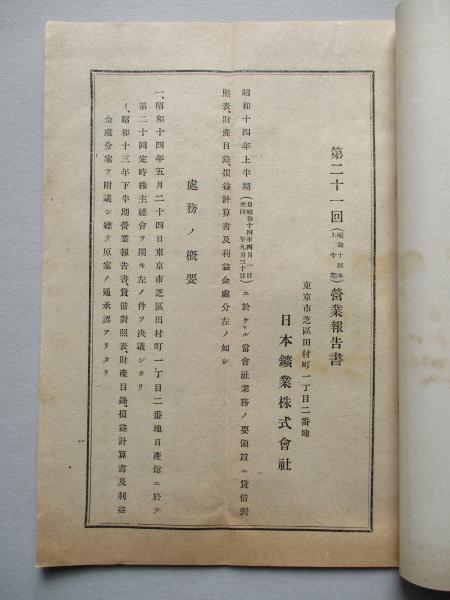 第二十一回（昭和十四年上半期）營業報告書
東京市芝區田村町一丁目二番地
日本鑛業株式會社
昭和十四年上半期（自昭和十四年四月一日至同年九月三十日）ニ於ケル當會社業務ノ要領竝ニ貸借對
照表、財產目錄、損益計算書及利益金處分左ノ如シ
處務ノ概要
一、昭和十四年五月二十四日東京市芝區田村町一丁目二番地日產館ニ於テ
第二十回定時株主總會ヲ開キ左ノ件ヲ決議シタリ
イ、昭和十三年下半期營業報告書、貸借對照表、財產目錄、損益計算書及利益
金處分案ヲ附議シ總テ原案ノ通承認アリタリ
一